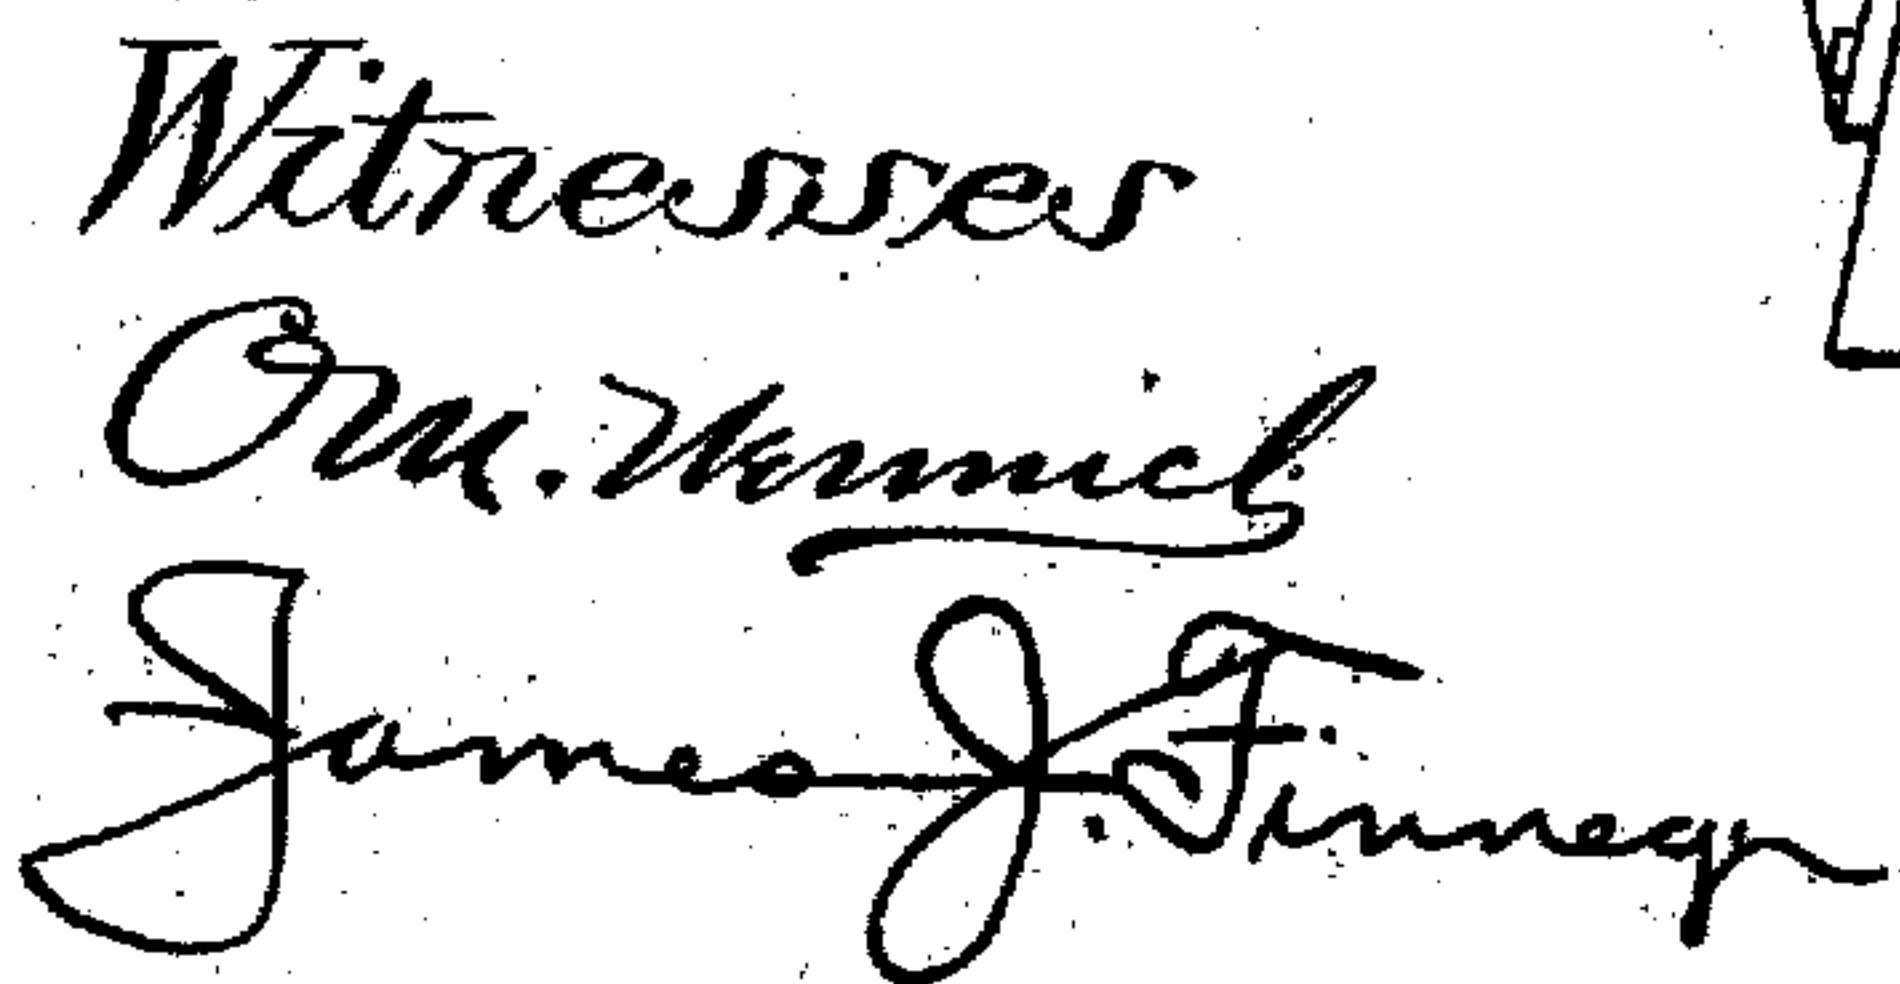 Witnesses
O.M. Wermich
James J. Finnegan